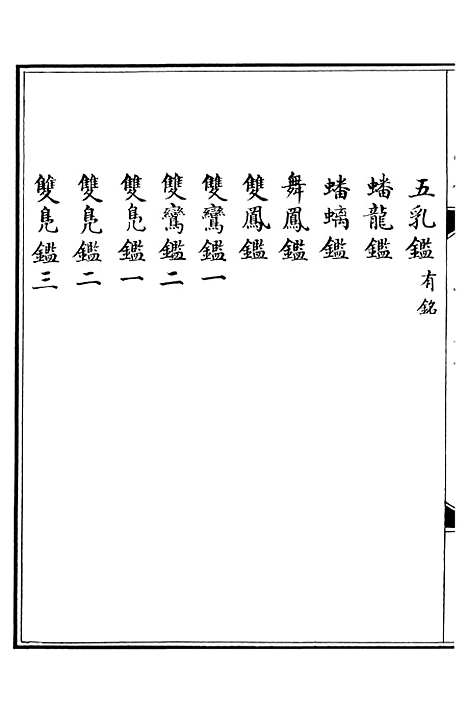 五乳鑑有銘
蟠龍鑑
蟠螭鑑
舞鳳鑑
雙鳳鑑
雙鸞鑑一
雙鸞鑑二
雙鳧鑑一
雙鳧鑑二
雙鳧鑑三